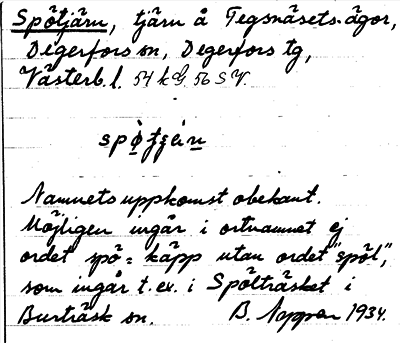 Spötjärn, tjärn å Tegsnäsets ägor,
Degerfors sn, Degerfors tg,
Västerb. l. 54 k G. 56 S V.
spø̀tʃæ̀n
Namnets uppkomst obekant.
Möjligen ingår i ortnamnet ej
ordet spö = käpp utan ordet "spöl",
som ingår t. ex. i Spölträsket i
Burträsk sn. B. 1934.